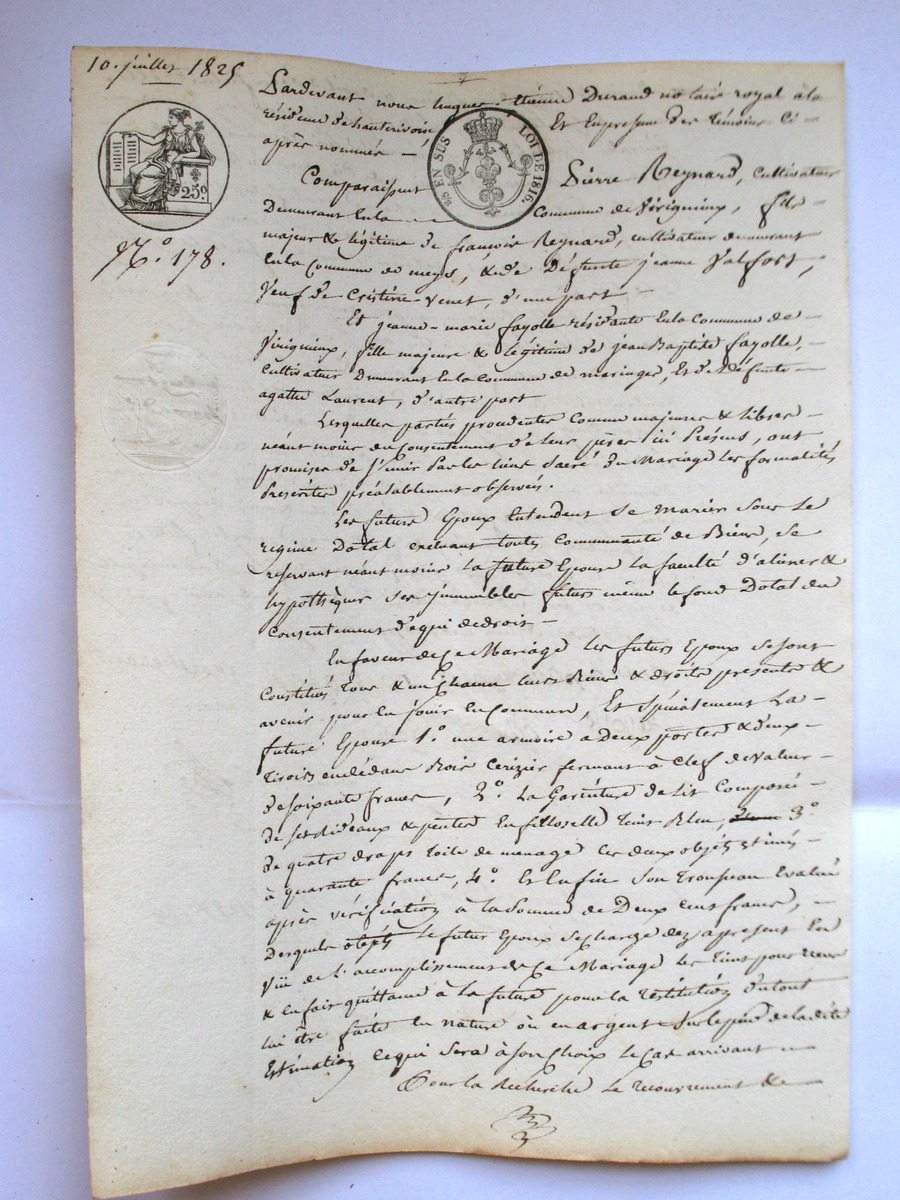 10. juillet 1825
Pardevant nous hugues-étienne Durand notaire royal à la
résidence d'hauterivoire, Et En presence des témoins ci-
après nommés —
25 EN SUS LOI DE 1816
25c
N.o 178.
Comparaissent Pierre Reynard, cultivateur
Demeurant En la commune de Virigneux, fils
majeur & légitime de françois Reynard, cultivateur demeurant
En la commune de meys, & de Défunte jeanne Valfort,
Veuf de Cristine Venet, d'une part —
Et jeanne-marie fayolle résidante En la Commune de
Virigneux, fille majeure & légitime de jean Baptiste fayolle,
Cultivateur Demeurant En la Commune de maringes, Et de Défunte
agathe Laurent, d'autre part
Lesquelles parties procedantes comme majeures & libres
néant moins du Consentement de leurs peres ici Présens, ont
promises de s'unir Par les liens Sacré du Mariage les formalités
Prescrites préalablement observées.
Les futurs Epoux Entendent se marier sous le
regime Dotal excluant toutes Communauté de Biens, se
reservant néant moins la future Epouse la faculté d'aliéner &
hypothéquer ses immeubles futurs même le fond Dotal du
Consentement de qui de droit —
En faveur de Ce Mariage les futurs Epoux se sont
Constitués tous & un chacun leurs Biens & droits presents &
avenir pour en jouir En Commun, Et Spécialement La
future Epouse 1.o une armoire a Deux portes & deux
tiroirs en dédans Bois Cerizier fermant à Clef de valeur
de soixante francs, 2.o La Garniture de lit Composée
de ses Rideaux & pentes En filloselle teint Bleu, 3.o
de quatre draps toile de menage ces deux objets Estimés
à quarante francs, 4.o Et Enfin Son Trousseau Evalué
après vérification à la Somme de Deux Cent francs,
Desquels objets le futur Epoux se charge dez apresent En
Vüe de l'accomplissement de Ce Mariage les tient pour reçus
& en fait quittance à la future pour la Restitution du tout
lui être faite En nature où en argent sur le pied de la dite
Estimation Ce qui sera à son Choix le Cas arrivant —
Pour la Recherche le recouvrement &